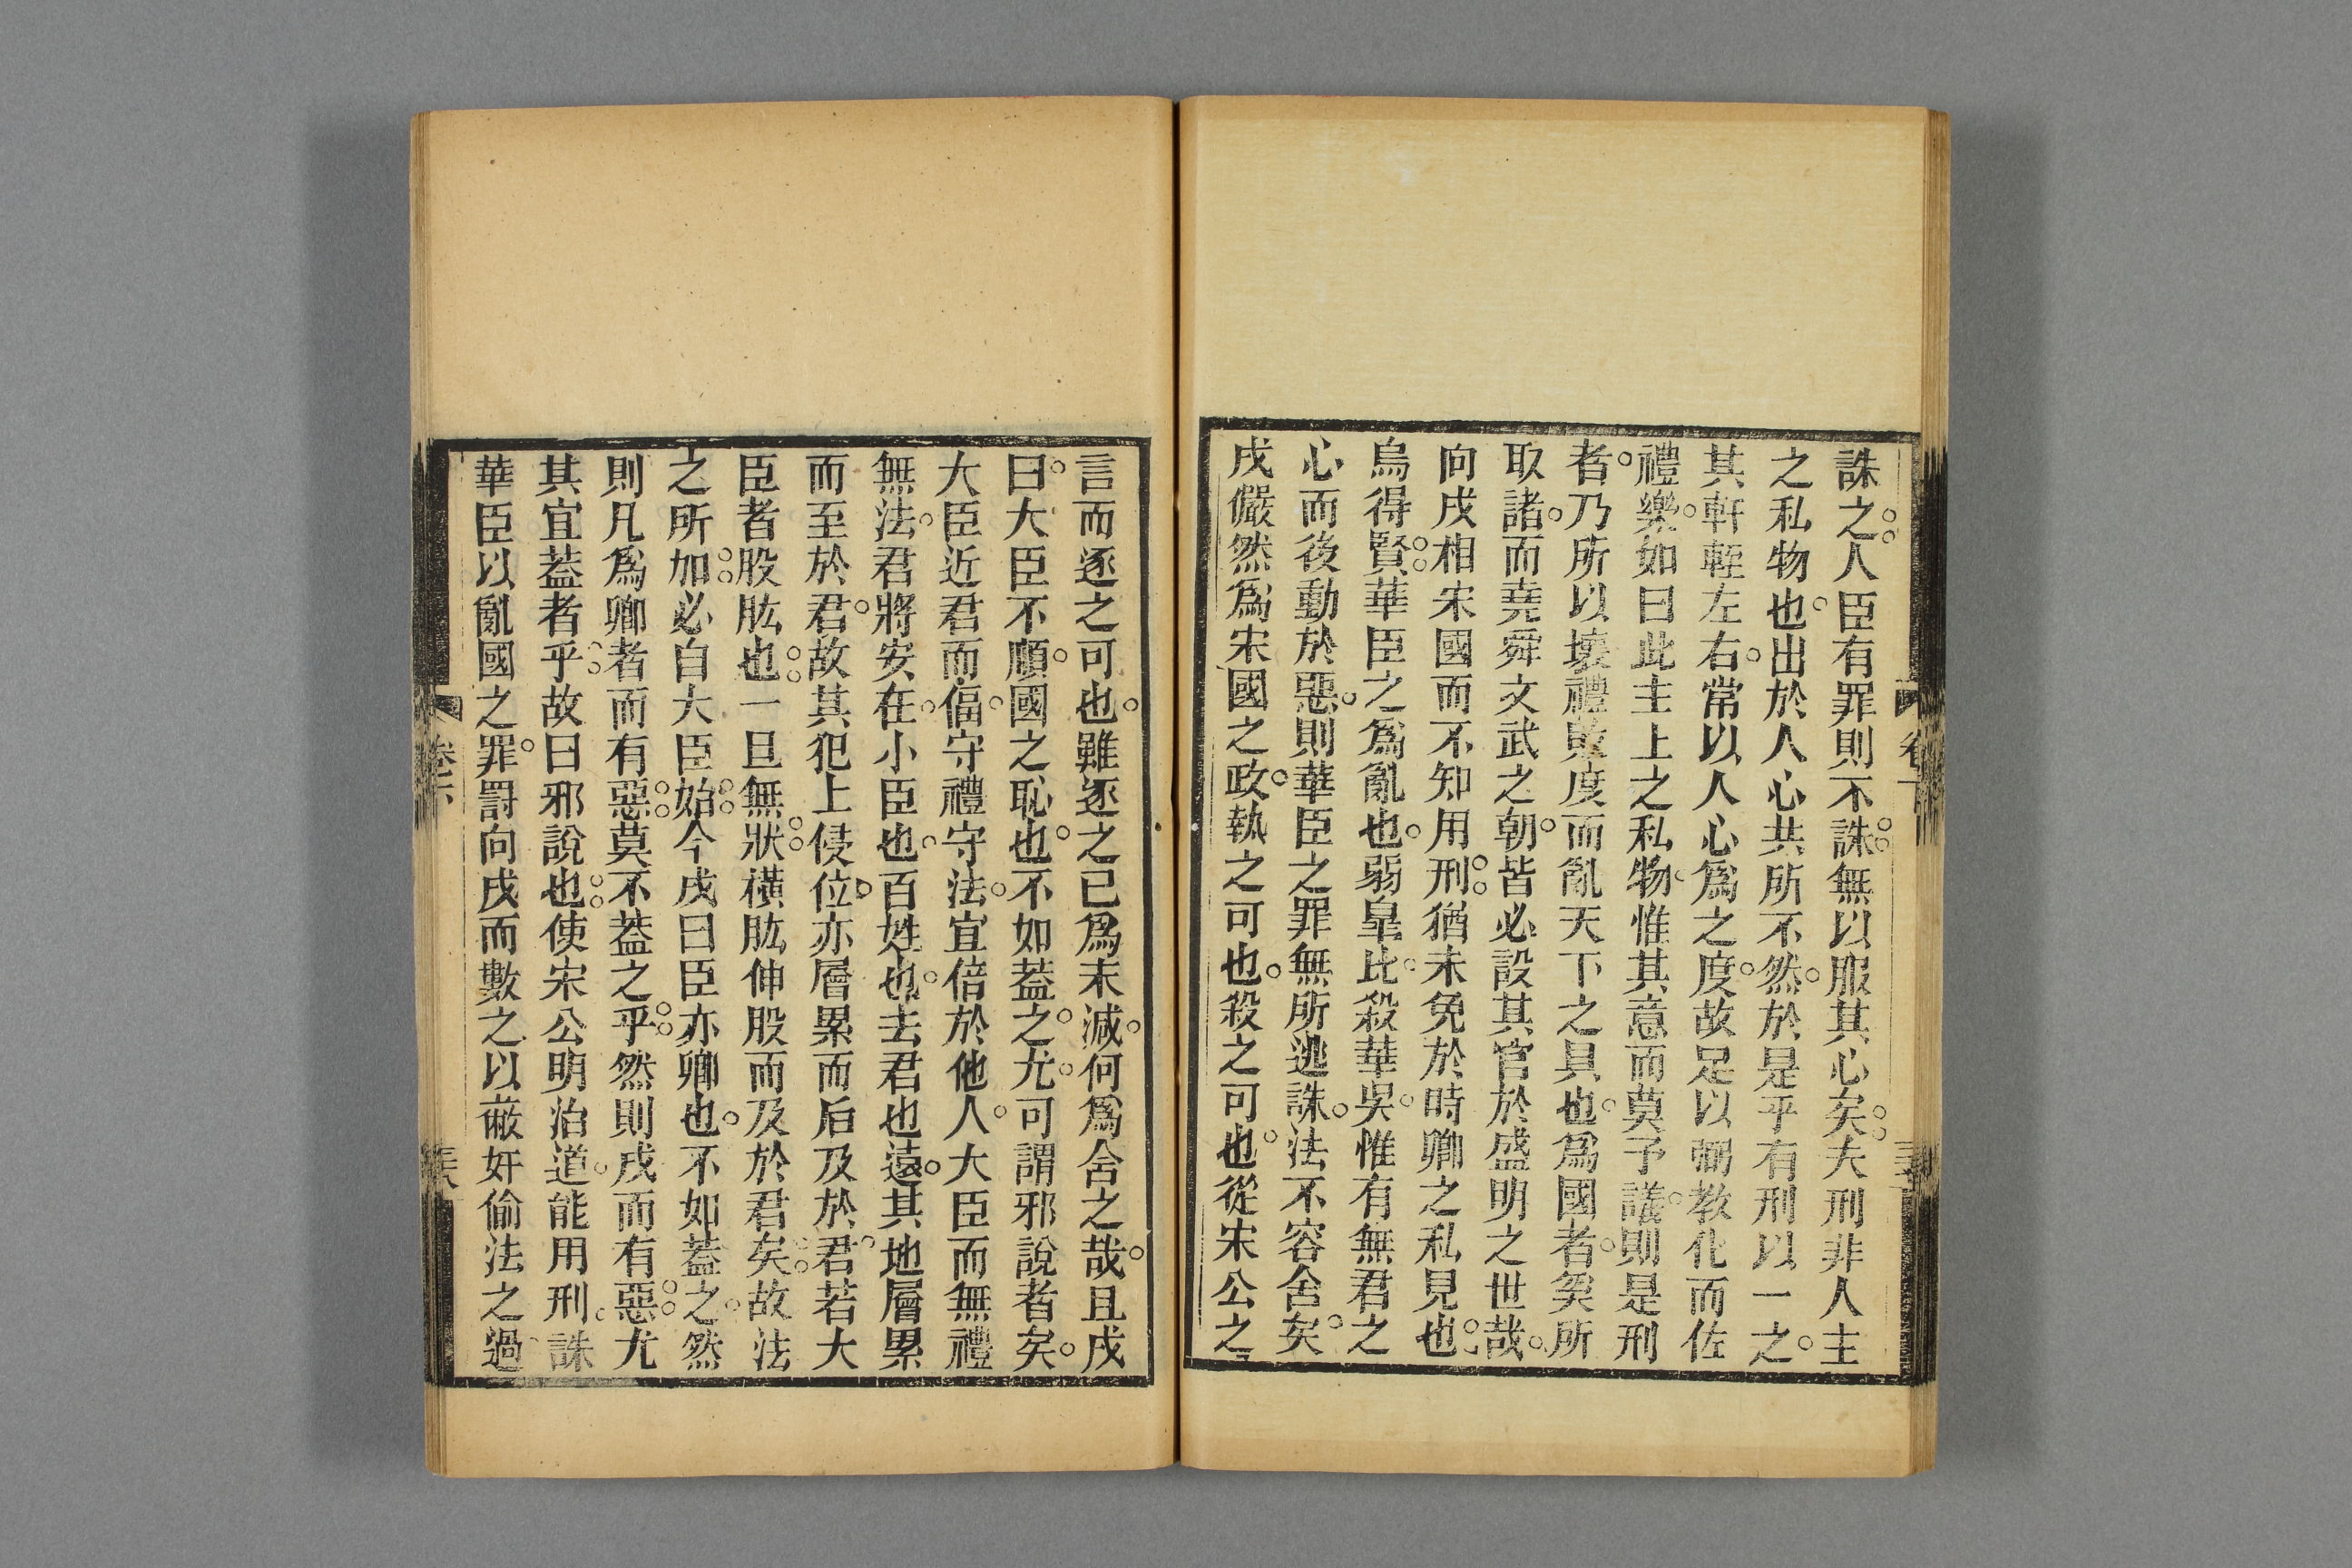 誅之。人臣有罪則不誅。無以服其心矣。夫刑非人主
之私物也。出於人心共所不然。於是乎有刑以一之。
其軒輊左右。常以人心爲之度。故足以弼教化而佐
禮樂。如曰此主上之私物。惟其意而莫予議。則是刑
者。乃所以壞禮敗度而亂天下之具也。爲國者。奚所
取諸。而堯舜文武之朝。皆必設其官於盛明之世哉。
向戌相宋國而不知用刑。猶未免於時卿之私見也。
烏得賢。華臣之爲亂也。弱皐比。殺華吳。惟有無君之
心而後動於惡。則華臣之罪無所逃誅。法不容舍矣。
戌儼然爲宋國之政。執之可也。殺之可也。從宋公之
言而逐之可也。雖逐之已爲末減。何爲舍之哉。且戌
曰。大臣不順。國之恥也。不如蓋之。尤可謂邪說者矣。
大臣近君而偪。守禮守法。宜倍於他人。大臣而無禮
無法。君將安在。小臣也。百姓也。去君也遠。其地層累
而至於君。故其犯上侵位。亦層累而后及於君。若大
臣者股肱也。一旦無狀。橫肱伸股而及於君矣。故法
之所加。必自大臣始。今戌曰臣亦卿也。不如蓋之。然
則凡爲卿者而有惡。莫不蓋之乎。然則戌而有惡。尤
其宜蓋者乎。故曰邪說也。使宋公明治道。能用刑。誅
華臣以亂國之罪。罸向戌而數之以蔽奸偷法之過
卷下